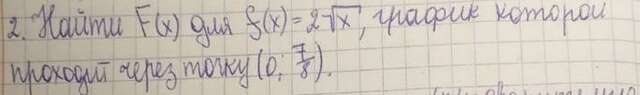 2. Найти F(x) для f(x)=2√x, график которой
проходит через точку (0; 7/8).